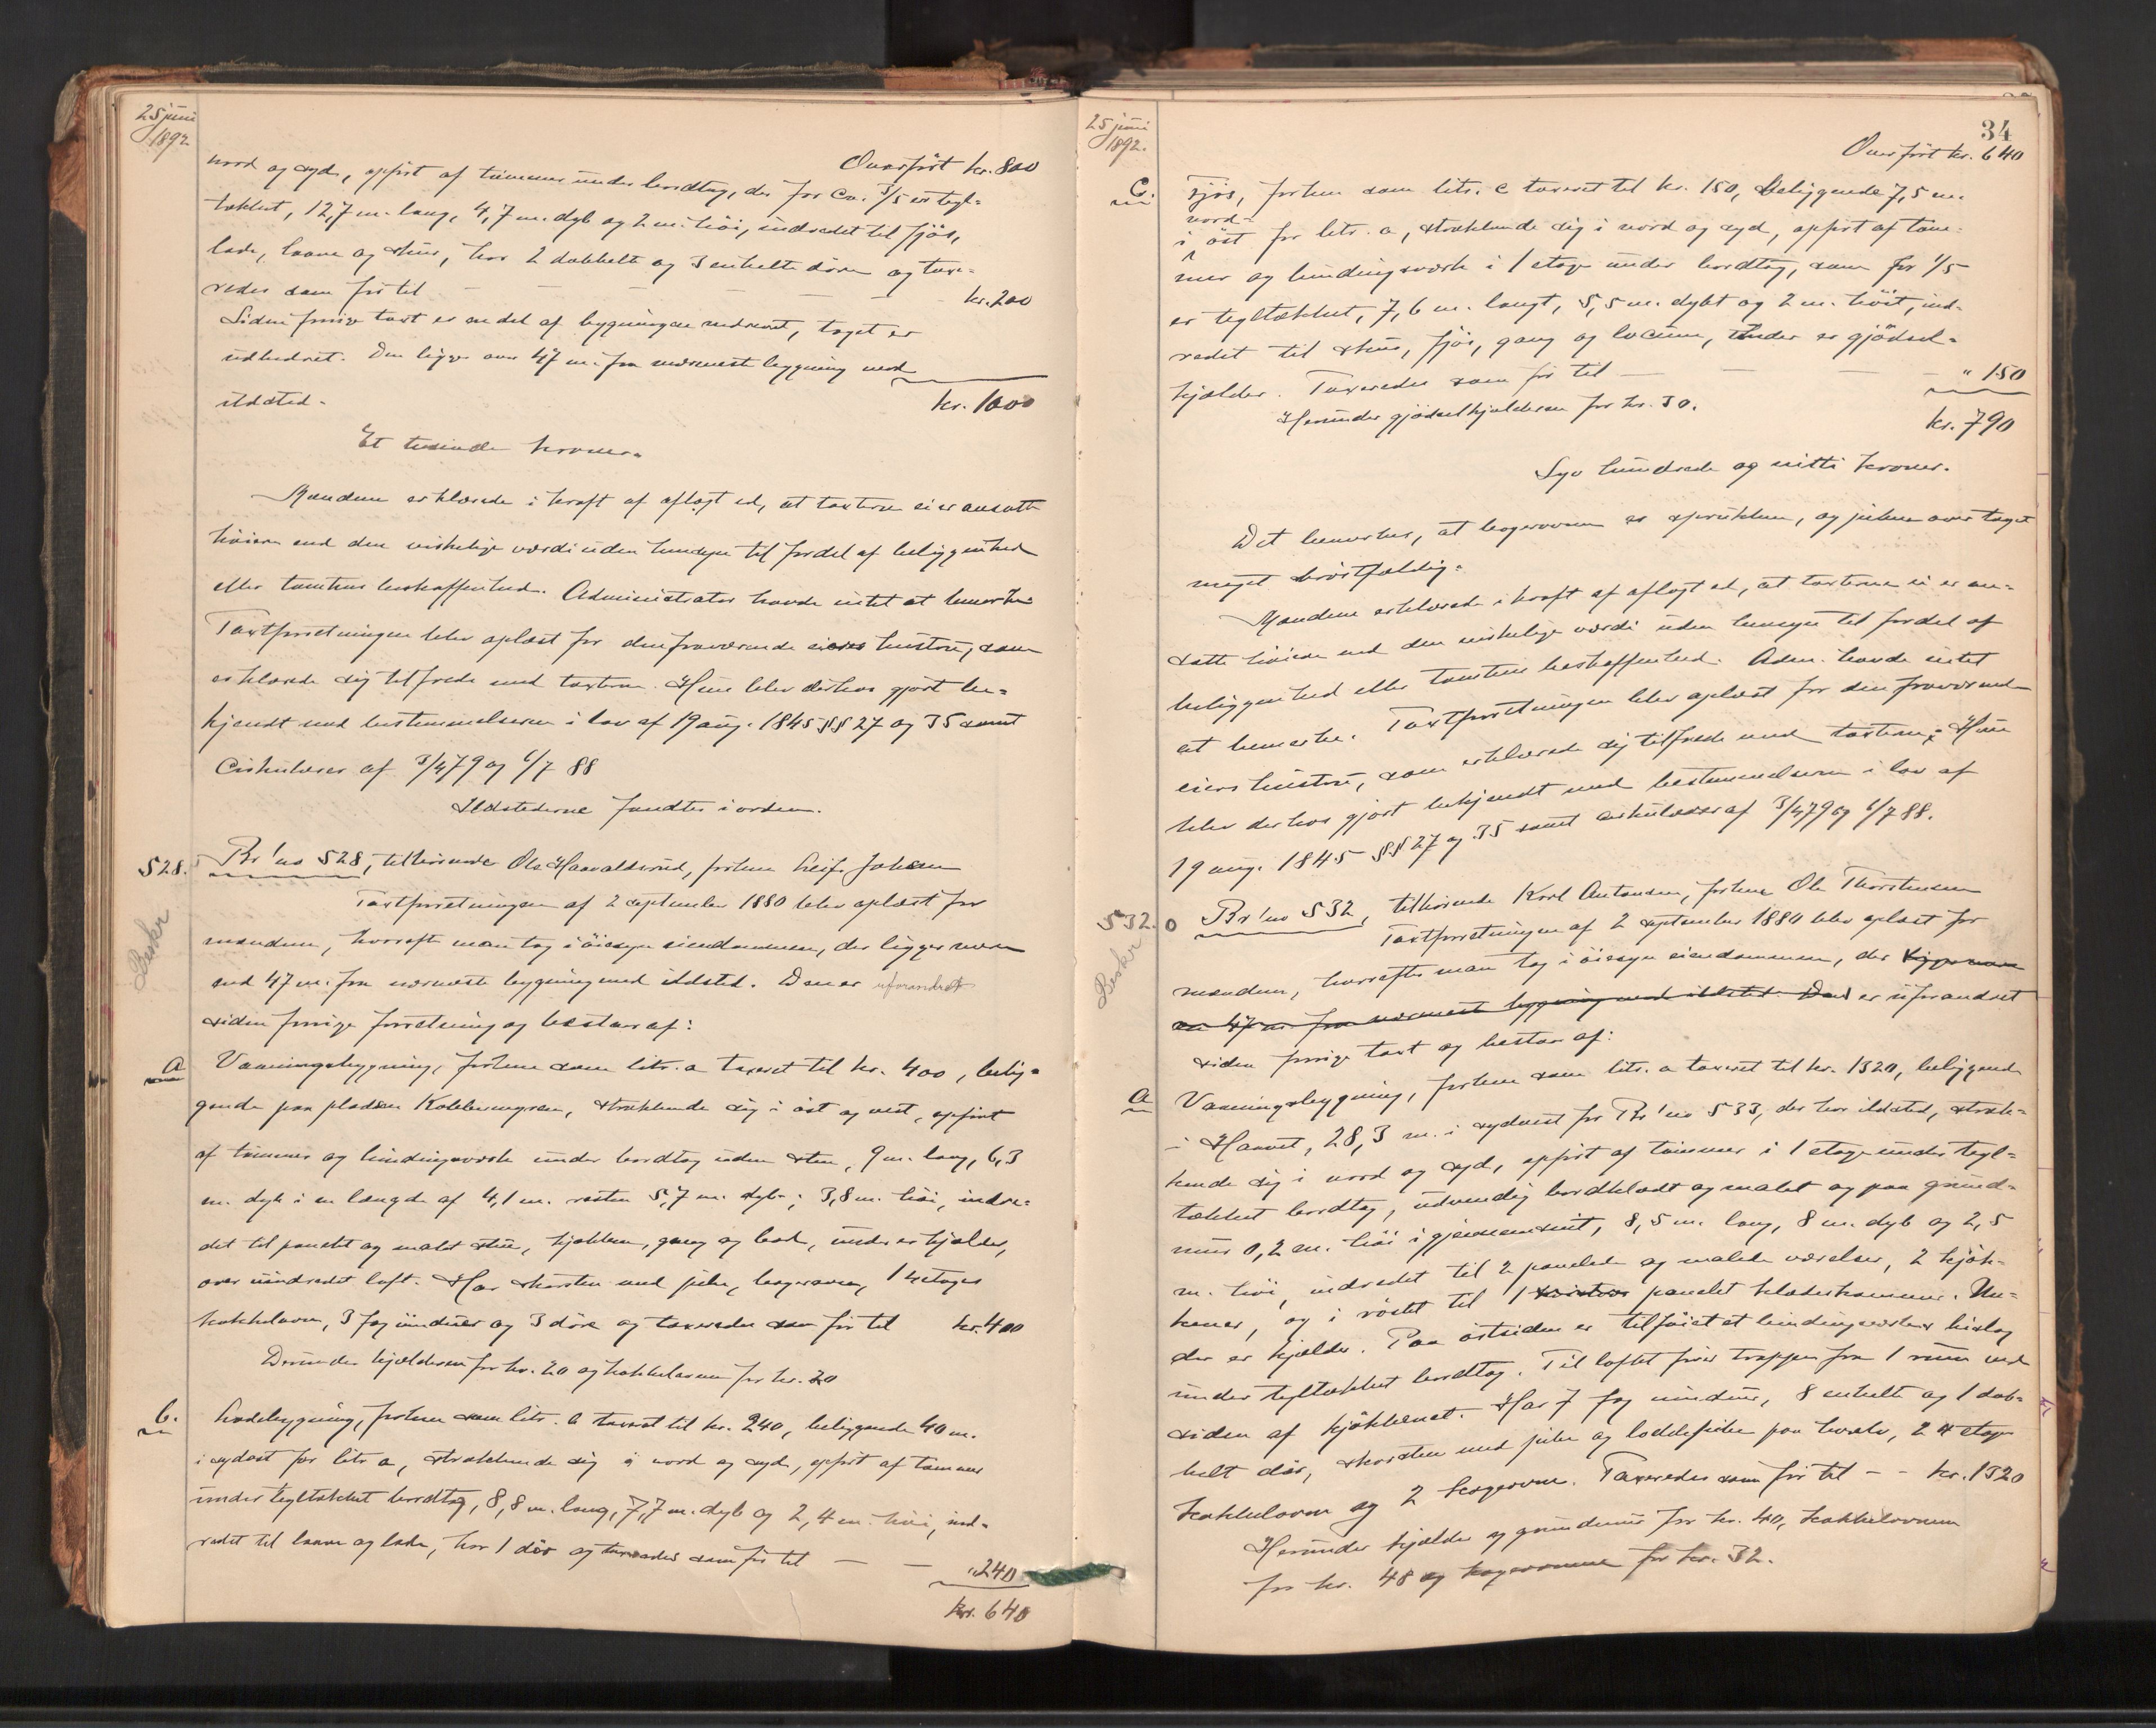 25 juni
1892
Overført kr. 800
nord og syd, opført af tømmer under bordtag, der for ca. 3/5 er tegl=
tækket, 12,7 m. lang, 4,7 m. dyb og 2 m. høi, indredet til fjøs,
lade, laave og skur, har 2 dobbelte og 3 enkelte døre og taxe=
redes som før til — — — — — kr. 200
Siden forrige taxt er en del af bygningen nedrevet, taget er
udbedret. Den ligger over 47 m. fra nærmeste bygning med
ildsted.
kr. 1000
Et tusinde kroner.
Mændene erklærede i kraft af aflagt ed, at taxterne ei er ansatte
høiere end den virkelige værdi uden hensyn til fordel af beliggenhed
eller tomtens beskaffenhed. Administrator havde intet at bemerke.
Taxtforretningen blev oplæst for den fraværende eiers hustru, som
erklærede sig tilfreds med taxterne. Hun blev derhos gjort be=
kjendt med bestemmelserne i lov af 19 aug. 1845 §§ 27 og 35 samt
Cirkulærer af 3/4 79 og 6/7 88
Ildstederne fandtes i orden.
528.
Br no 528, tilhørende Ole Haavaldsrud, forhen Leif Johsen
Taxtforretningen af 2 september 1880 blev oplæst for
Beskr
mændene, hvorefter man tog i øiesyn eiendommen, der ligger mere
end 47 m. fra nærmeste bygning med ildsted. Den er uforandret
siden forrige forretning og bestaar af:
a
Vaaningsbygning, forhen som litr. a taxeret til kr. 400, belig=
gende paa pladsen Kobbervngren, strækkende sig i øst og vest, opført
af tømmer og bindingsværk under bordtag uden sten, 9 m. lang, 6,3
m. dyb i en længde af 4,1 m. resten 5,7 m. dyb; 3,8 m. høi, indre=
det til panelet og malet stue, kjøkken, gang og bod, under er kjælder,
over uindredet loft. Har skorsten med pibe, bagerovn, 1 4etages
kakkelovn, 3 fag vinduer og 3 døre og taxeredes som før til kr. 400
Derunder kjælderen for kr. 20 og kakkelovnen for kr. 20
b.
Ladebygning, forhen som litr. b taxeret til kr. 240, beliggende 40 m.
i sydøst for litr a, strækkende sig i nord og syd, opført af tømmer
under tegltækket bordtag, 8,8 m. lang, 7,7 m. dyb og 2,4 m. høi, ind=
redet til laave og lade, har 1 dør og taxeredes som før til — — " 240
kr. 640
34
25 juni
1892.
Overført kr. 640
c.
Fjøs, forhen som litr. c taxeret til kr. 150, beliggende 7,5 m.
nord=
i øst for litr. a, strækkende sig i nord og syd, opført af tøm=
mer og bindingsværk i 1 etage under bordtag, som for 1/5
er tegltækket, 7,6 m. langt, 5,5 m. dybt og 2 m. høit, ind=
redet til skur, fjøs, gang og locum, under er gjødsel=
kjælder. Taxeredes som før til — — — — " 150
Herunder gjødselkjælderen for kr. 30.
kr. 790
Syv hundrede og nitti kroner.
Det bemerkes, at bagerovnen er sprukken, og piben over taget
meget brøstfældig.
Mændene erklærede i kraft af aflagt ed, at taxterne ei er an=
satte høiere end den virkelige værdi uden hensyn til fordel af
beliggenhed eller tomtens beskaffenhed. Adm. havde intet
at bemerke. Taxtforretningen blev oplæst for den fraværende
eiers hustru, som erklærede sig tilfreds med taxterne. Hun
blev derhos gjort bekjendt med bestemmelserne i lov af
19 aug. 1845 §§ 27 og 35 samt cirkulærer af 3/4 79 og 6/7 88.
532. o
Br no 532, tilhørende Karl Antonsen, forhen Ole Thorstensen
Taxtforretningen af 2 september 1880 blev oplæst for
Beskr
mændene, hvorefter man tog i øiesyn eiendommen, der ligger mere
en 47 m. fra nærmeste bygning med ildsted. Den er uforandret
siden forrige taxt og bestaar af:
a
Vaaningsbygning, forhen som litr. a taxeret til kr. 1320, beliggende
i Haavet, 28,3 m. i sydvest for Br no 533, der har ildsted, stræk=
kende sig i nord og syd, opført af tømmer i 1 etage under tegl=
tækket bordtag, udvendig bordklædt og malet og paa grund=
mur 0,2 m. høi i gjennemsnit, 8,5 m. lang, 8 m. dyb og 2,5
m. høi, indredet til 2 panelede og malede værelser, 2 kjøk=
kener, og i røstet til 1 panelet klædeskammer. Un=
der er kjælder. Paa østsiden er tilføiet et bindingsværks bislag
under tegltækket bordtag. Til loftet fører trapper fra 1 rum ved
siden af kjøkkenet. Har 7 fag vinduer, 8 enkelte og 1 dob=
belt dør, skorsten med pibe og loddepibe paa hvælv, 2 4 etages
kakkelovne og 2 kogeovne. Taxeredes som før til — — kr. 1320
Herunder kjælder og grundmur for kr. 40, kakkelovnene
for kr. 48 og kogeovnene for kr. 32.